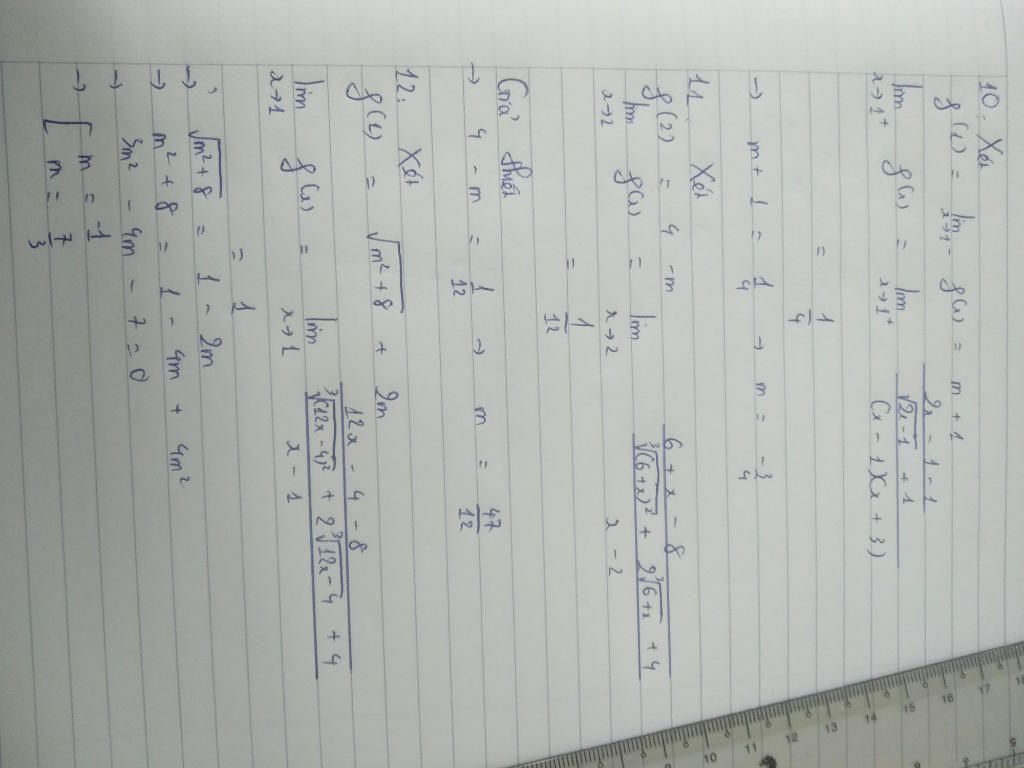 10. Xét
f(1) = lim x→1⁻ f(x) = m + 1
lim x→1⁺ f(x) = lim x→1⁺ ((2x - 1 - 1)/(√(2x-1) + 1))/((x - 1)(x + 3))
= 1/4
→ m + 1 = 1/4 → m = -3/4
11. Xét
f(2) = 4 - m
lim x→2 f(x) = lim x→2 ((6 + x - 8)/(∛(6+x)² + 2∛(6+x) + 4))/(x - 2)
= 1/12
→ 4 - m = 1/12 → m = 47/12
12. Xét
f(1) = √(m² + 8) + 2m
lim x→1 f(x) = lim x→1 ((12x - 4 - 8)/(∛(12x-4)² + 2∛(12x-4) + 4))/(x - 1)
= 1
→ √(m² + 8) = 1 - 2m
→ m² + 8 = 1 - 4m + 4m²
→ 3m² - 4m - 7 = 0
→ [ m = -1
m = 7/3
5
8
9
10
11
12
13
14
15
16
17
18